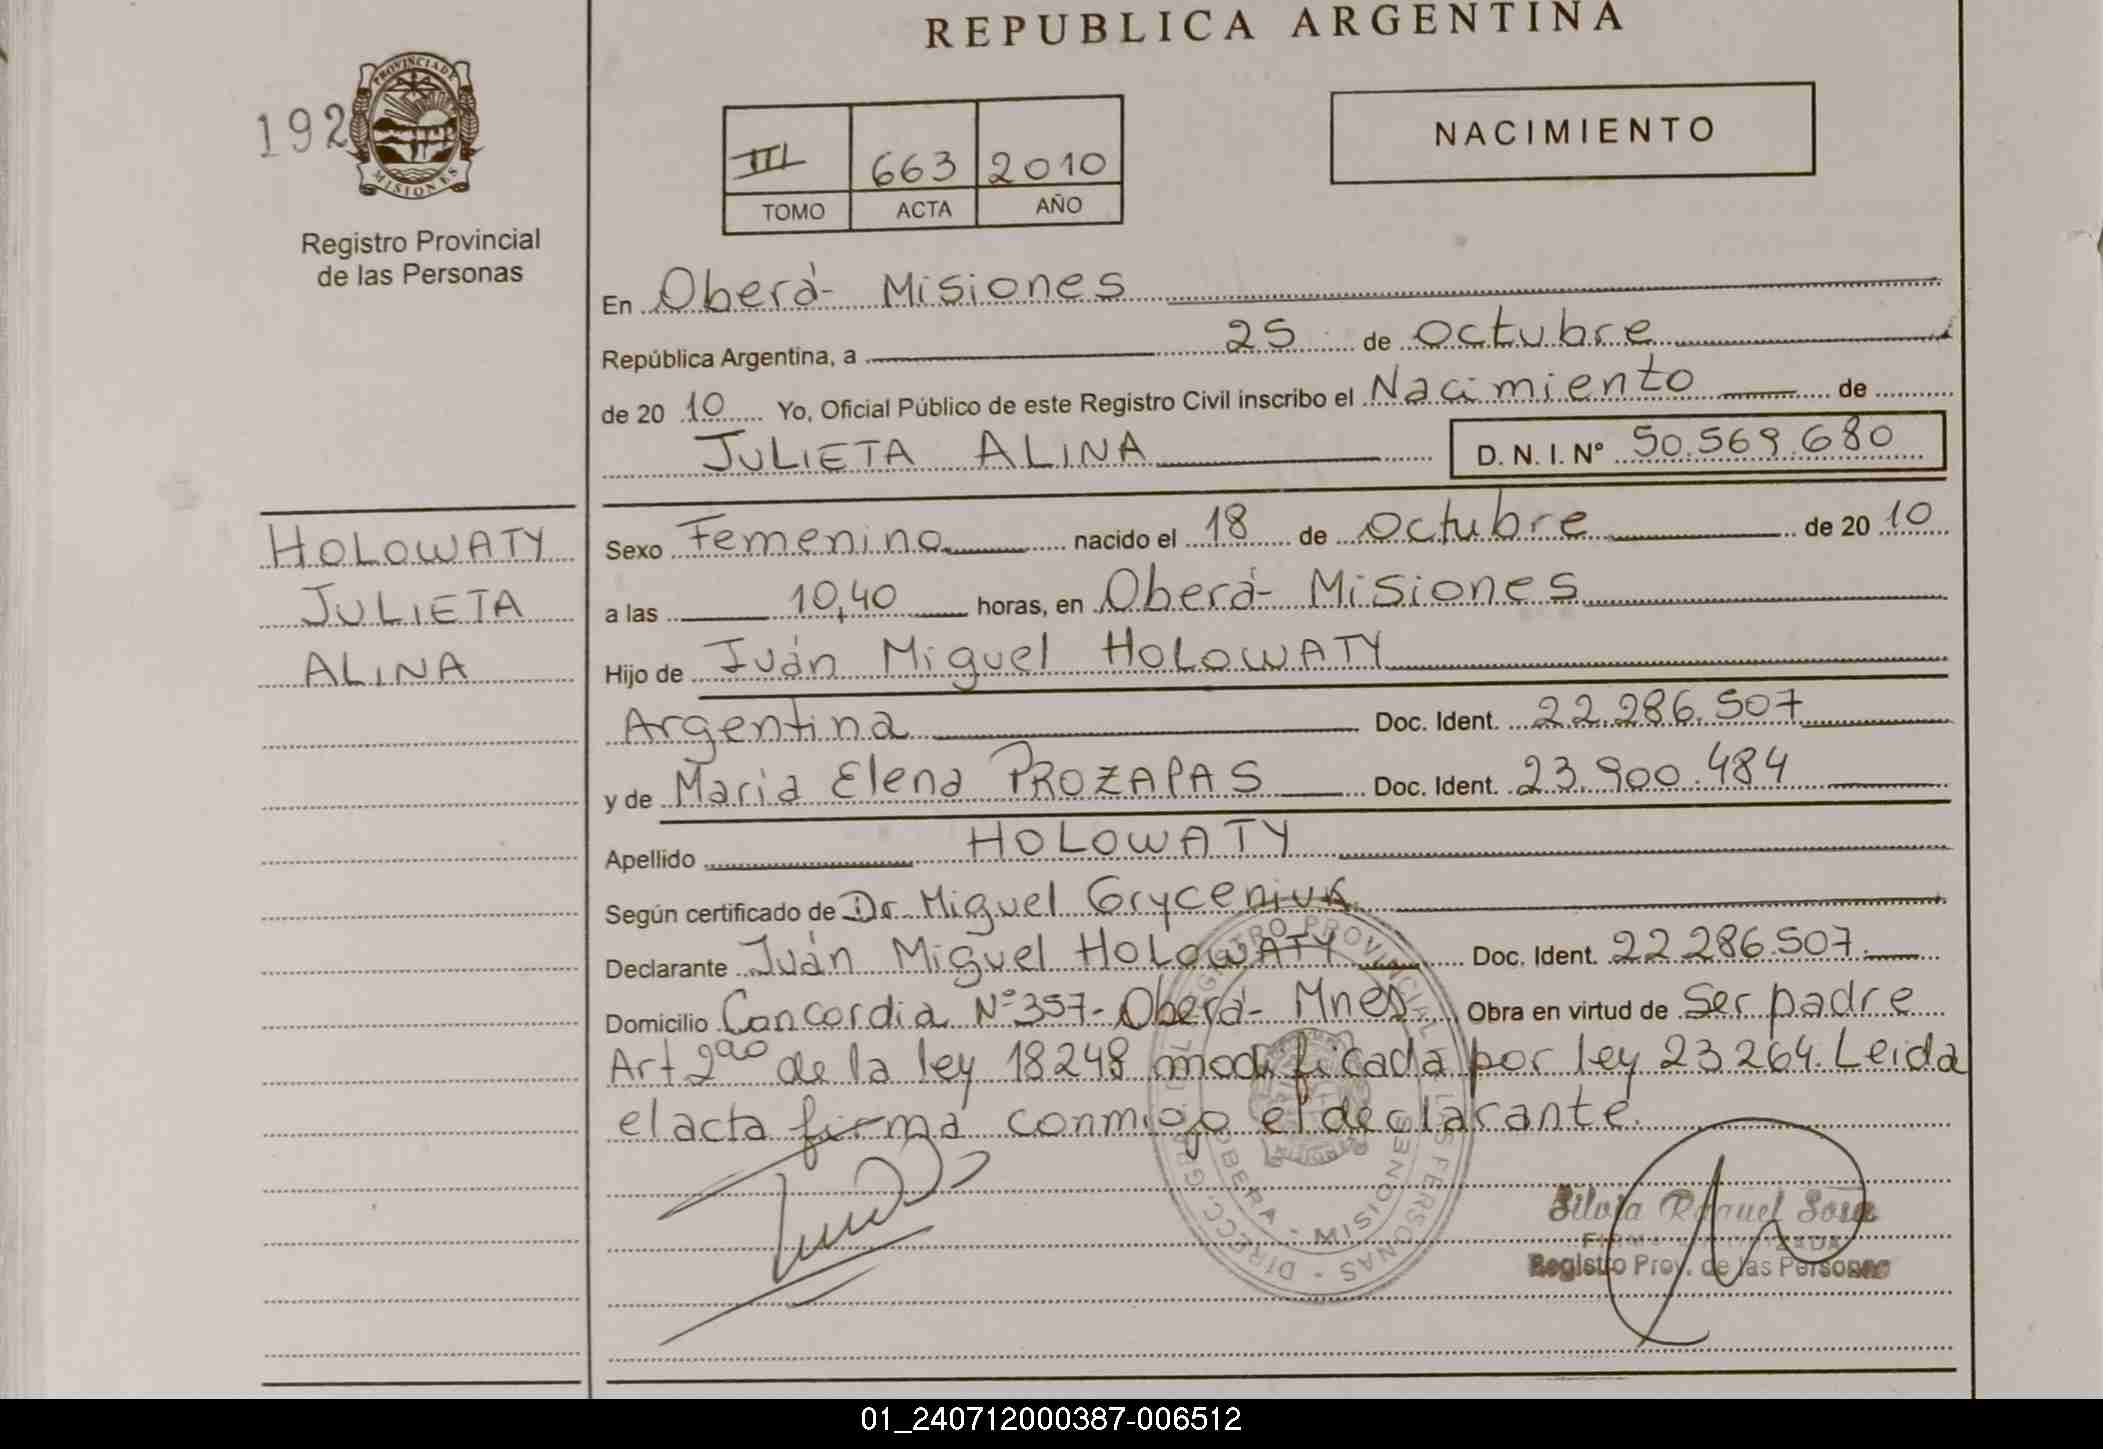 REPUBLICA ARGENTINA
192
PROVINCIA DE MISIONES
Registro Provincial
de las Personas
III 663 2010
TOMO ACTA AÑO
NACIMIENTO
En Oberá- Misiones
República Argentina, a 25 de octubre
de 2010 Yo, Oficial Público de este Registro Civil inscribo el Nacimiento de
JULIETA ALINA D. N. I. Nº 50.569.680
HOLOWATY
JULIETA
ALINA
Sexo Femenino nacido el 18 de octubre de 2010
a las 10,40 horas, en Oberá- Misiones
Hijo de Iván Miguel HOLOWATY
Argentina Doc. Ident. 22.286.507
y de Maria Elena PROZAPAS Doc. Ident. 23.900.484
Apellido HOLOWATY
Según certificado de Dr. Miguel Gryceniuk
Declarante Iván Miguel HOLOWATY Doc. Ident. 22 286.507.
Domicilio Concordia Nº 357- Oberá- Mnes Obra en virtud de Ser padre
Art 2do de la ley 18248 modificada por ley 23264. Leida
el acta firma conmigo el declarante.
REGISTRO PROVINCIAL DE LAS PERSONAS - DIRECC. GRAL.
OBERA - MISIONES
Silvia Raquel Sosa
Registro Prov. de las Personas
01_240712000387-006512